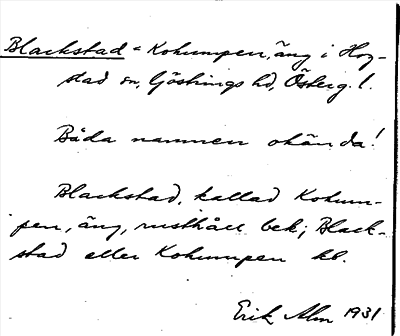 Blackstad = Kohumpen, äng i Hog-
stad sn, Göstrings hd, Österg. l.
Båda namnen okända!
Blackstad, kallad Kohum-
pen, äng, rusthåll bek; Black-
stad eller Kohumpen kb.
Erik Alm 1931